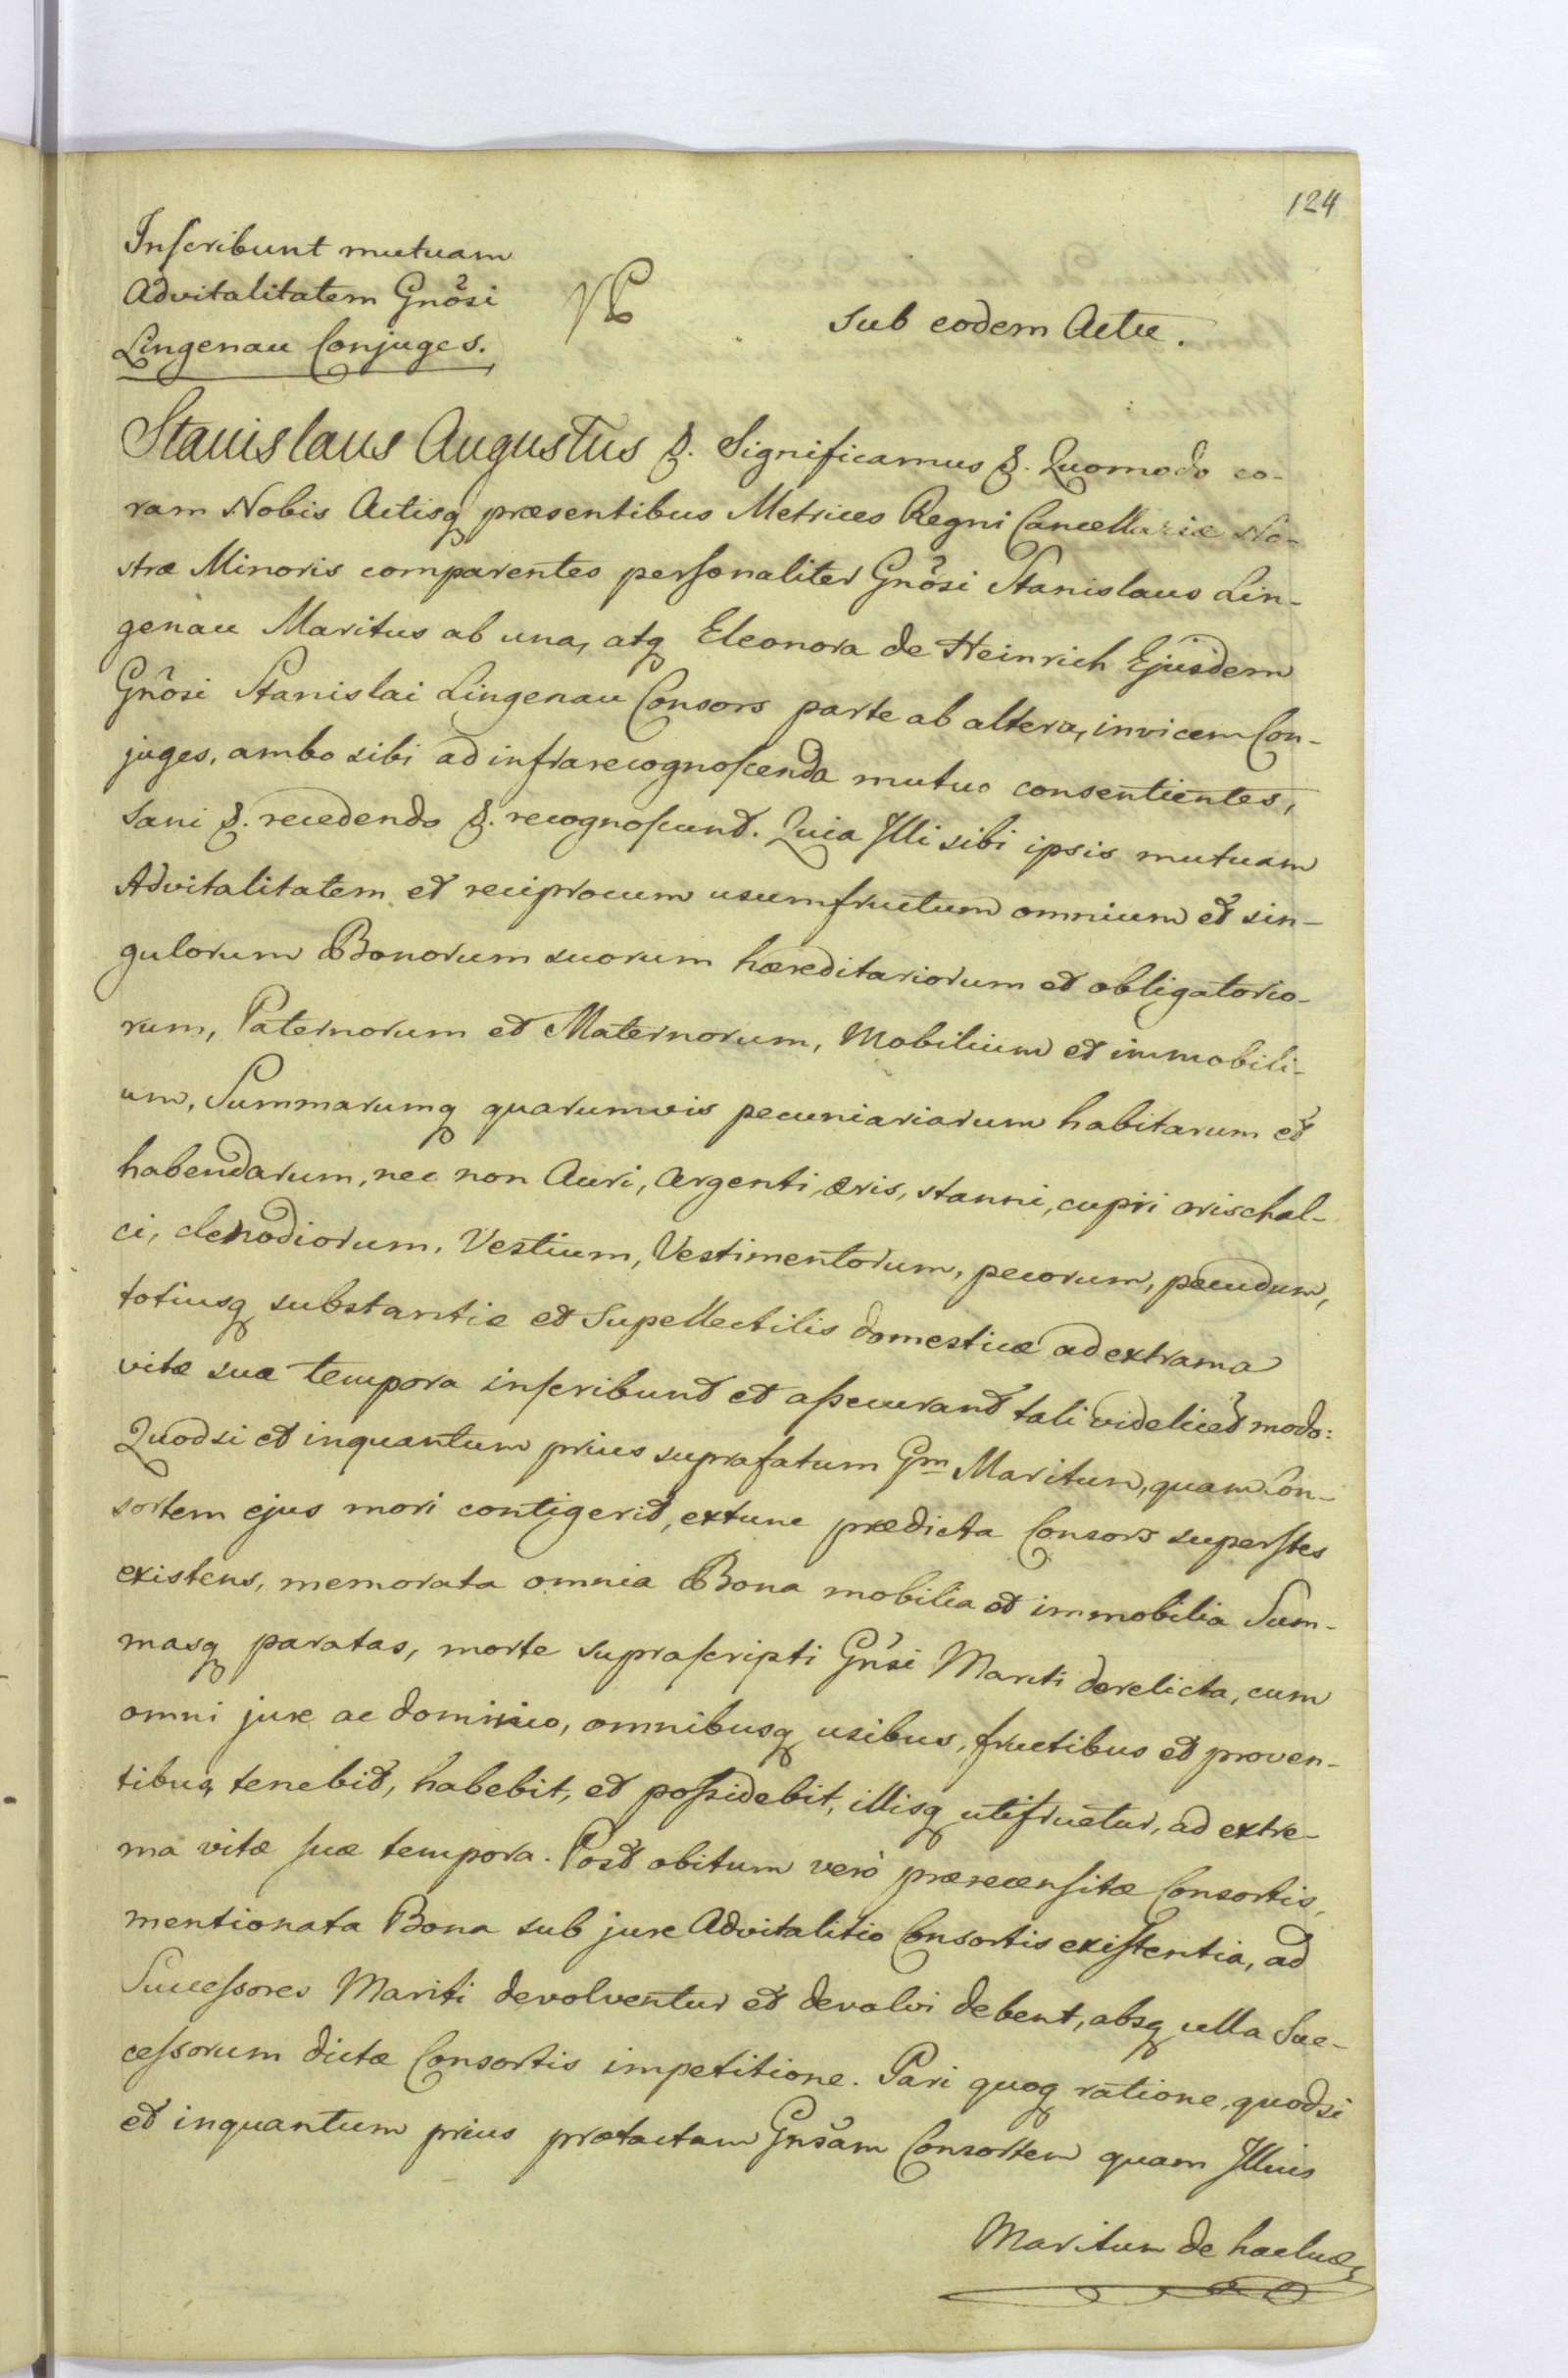 124
Inscribunt mutuam
Advitalitatem Gnõsi
Lingenau Conjuges.
Sub eodem Actu.
Stanislaus Augustus &. Significamus &. Quomodo co-
ram Nobis Actisq præsentibus Metrices Regni Cancellariæ No-
stræ Minoris comparentes personaliter Gnõsi Stanislaus Lin-
genau Maritus ab una, atq Eleonora de Heinrich Ejusdem
Gnõsi Stanislai Lingenau Consors parte ab altera, invicem Con-
juges, ambo sibi ad infrarecognoscenda mutuo consentientes,
Sani &. recedendo &. recognoscunt. Quia Illi sibi ipsis mutuam
Advitalitatem et reciprocum usumfructum omnium et sin-
gulorum Bonorum suorum hæreditariorum et obligatorio-
rum, Paternorum et Maternorum, Mobilium et immobili-
um, Summarumq quarumvis pecuniariarum habitarum et
habendarum, nec non Auri, Argenti, æris, stanni, cupri orischal-
ci, clenodiorum, Vestium, Vestimentorum, pecorum, pecudum,
totiusq substantiæ et Supellectilis domesticæ ad extrama
vitæ suæ tempora inscribunt et assecurant tali videlicet modo:
Quodsi et inquantum prius suprafatum Gm Maritum, quam Con-
sortem ejus mori contigerit, extunc prædicta Consors superstes
existens, memorata omnia Bona mobilia et immobilia Sum-
masq paratas, morte suprascripti Gnsi Mariti derelicta, cum
omni jure ac dominio, omnibusq usibus, fructibus et proven-
tibus, tenebit, habebit, et possidebit, illisq utifruetur, ad extre-
ma vitæ suæ tempora. Post obitum verò prærecensitæ Consortis,
mentionata Bona sub jure Advitalitio Consortis existentia, ad
Successores Mariti devolventur et devolvi debent, absq ulla Suc-
cessorum dictæ Consortis impetitione. Pari quoq ratione, quodsi
et inquantum prius prætactam Gnsam Consortem quam Illius
Maritum de hac luce